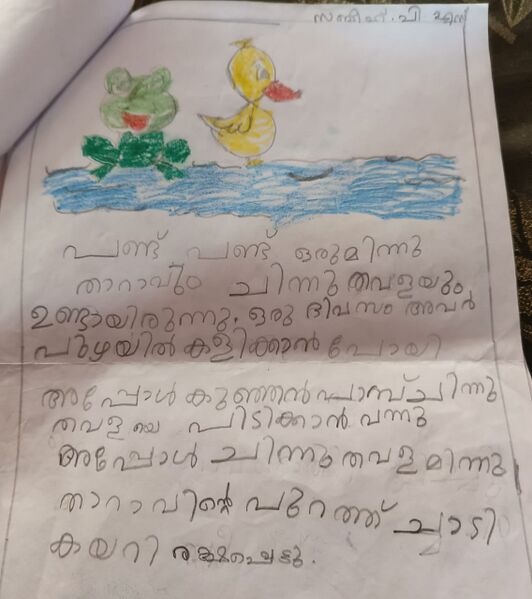 പി എസ്
പണ്ട് പണ്ട് ഒരുമിന്നു
താറാവും ചിന്നുതവളയും
ഉണ്ടായിരുന്നു. ഒരു ദിവസം അവർ
പുഴയിൽ കളിക്കാൻ പോയി
അപ്പോൾ കുഞ്ഞൻപാമ്പ് ചിന്നു
തവളയെ പിടിക്കാൻ വന്നു
അപ്പോൾ ചിന്നുതവളമിന്നു
താറാവിന്റെ പുറത്ത് ചാടി
കയറി രക്ഷപ്പെട്ടു.